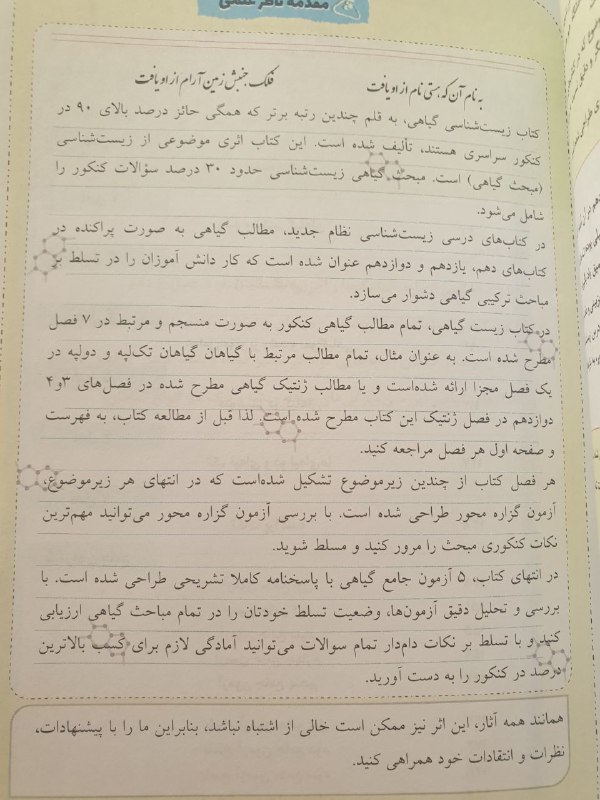 مقدمه ناظر علمی
به نام آن که هستی نام از او یافت فلک جنبش زمین آرام از او یافت
کتاب زیست‌شناسی گیاهی، به قلم چندین رتبه برتر که همگی حائز درصد بالای ۹۰ در
کنکور سراسری هستند، تألیف شده است. این کتاب اثری موضوعی از زیست‌شناسی
(مبحث گیاهی) است. مبحث گیاهی زیست‌شناسی حدود ۳۰ درصد سؤالات کنکور را
شامل می‌شود.
در کتاب‌های درسی زیست‌شناسی نظام جدید، مطالب گیاهی به صورت پراکنده در
کتاب‌های دهم، یازدهم و دوازدهم عنوان شده است که کار دانش آموزان را در تسلط بر
مباحث ترکیبی گیاهی دشوار می‌سازد.
در کتاب زیست گیاهی، تمام مطالب گیاهی کنکور به صورت منسجم و مرتبط در ۷ فصل
مطرح شده است. به عنوان مثال، تمام مطالب مرتبط با گیاهان گیاهان تک‌لپه و دولپه در
یک فصل مجزا ارائه شده‌است و یا مطالب ژنتیک گیاهی مطرح شده در فصل‌های ۳و۴
دوازدهم در فصل ژنتیک این کتاب مطرح شده است. لذا قبل از مطالعه کتاب، به فهرست
و صفحه اول هر فصل مراجعه کنید.
هر فصل کتاب از چندین زیرموضوع تشکیل شده‌است که در انتهای هر زیرموضوع،
آزمون گزاره محور طراحی شده است. با بررسی آزمون گزاره محور می‌توانید مهم‌ترین
نکات کنکوری مبحث را مرور کنید و مسلط شوید.
در انتهای کتاب، ۵ آزمون جامع گیاهی با پاسخنامه کاملا تشریحی طراحی شده است. با
بررسی و تحلیل دقیق آزمون‌ها، وضعیت تسلط خودتان را در تمام مباحث گیاهی ارزیابی
کنید و با تسلط بر نکات دام‌دار تمام سوالات می‌توانید آمادگی لازم برای کسب بالاترین
درصد در کنکور را به دست آورید.
همانند همه آثار، این اثر نیز ممکن است خالی از اشتباه نباشد، بنابراین ما را با پیشنهادات،
نظرات و انتقادات خود همراهی کنید.